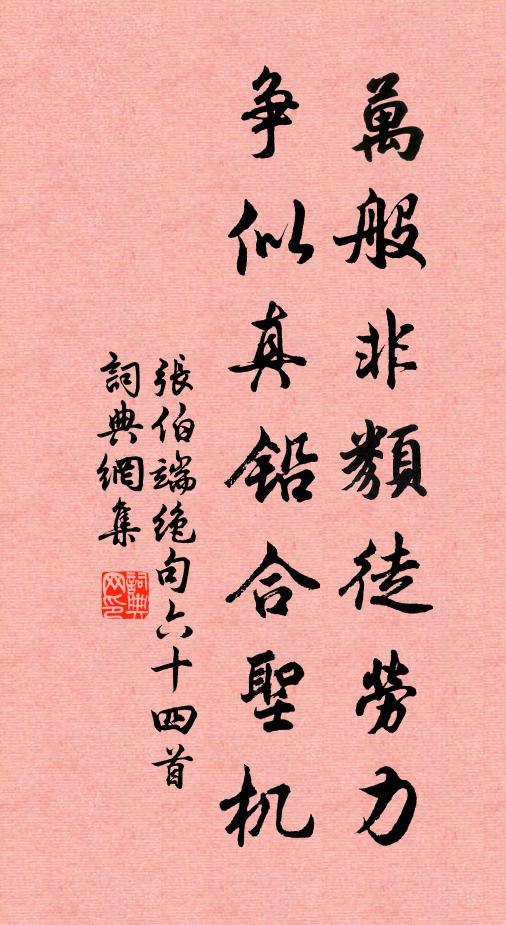 萬般非類徒勞力
争似真鉛合聖机
張伯端絶句六十四首
詞典網集
詞典网印